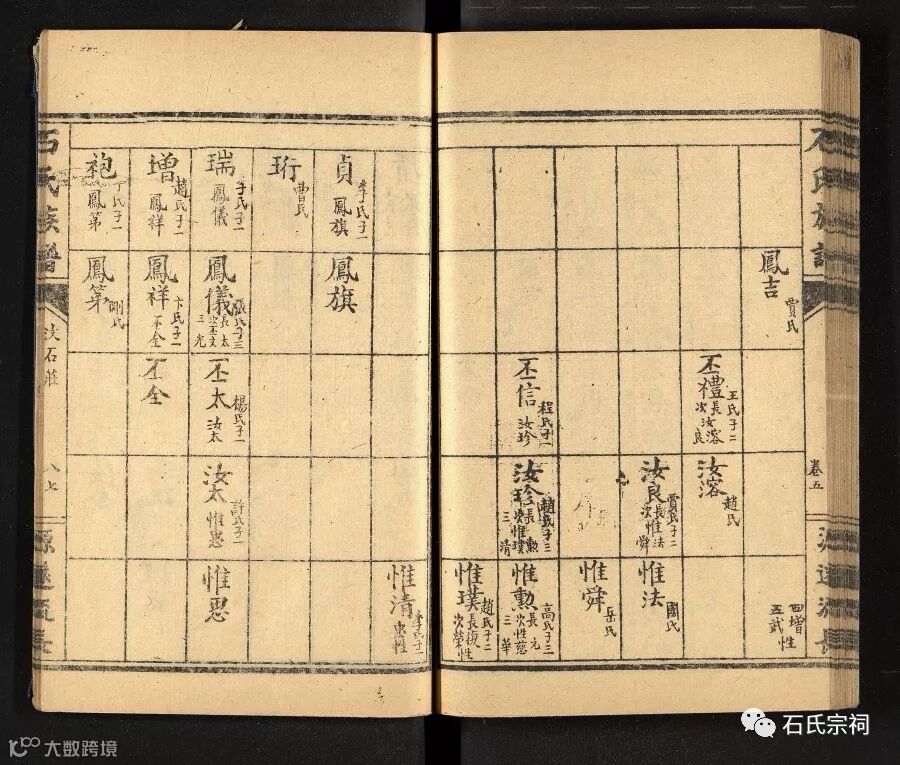 石氏族譜
卷五
源遠流長
鳳吉
賈氏
四增性
五武性
丕禮
王氏子二
長汝溶
次汝良
汝溶
趙氏
汝良
賈氏子二
長惟法
次惟舜
惟法
國氏
惟舜
岳氏
丕信
程氏子一
汝珍
汝珍
趙氏子三
長惟勲
次惟璞
三清
惟勲
高氏子三
長元
次性慈
三華
惟璞
趙氏子二
長復性
次榮性
惟清
李氏子一
忠性
貞
李氏子一
鳳旗
鳳旗
珩
曹氏
瑞
于氏子一
鳳儀
鳳儀
張氏子三
長丕太
次丕文
三光
丕太
楊氏子一
汝太
汝太
許氏子一
惟恩
惟恩
增
趙氏子一
鳳祥
鳳祥
卞氏子一
丕全
丕全
袍
丁氏子一
鳳第
鳳第
剛氏
石氏族譜
汶石莊
八七
源遠流長
石氏宗祠
大数跨境